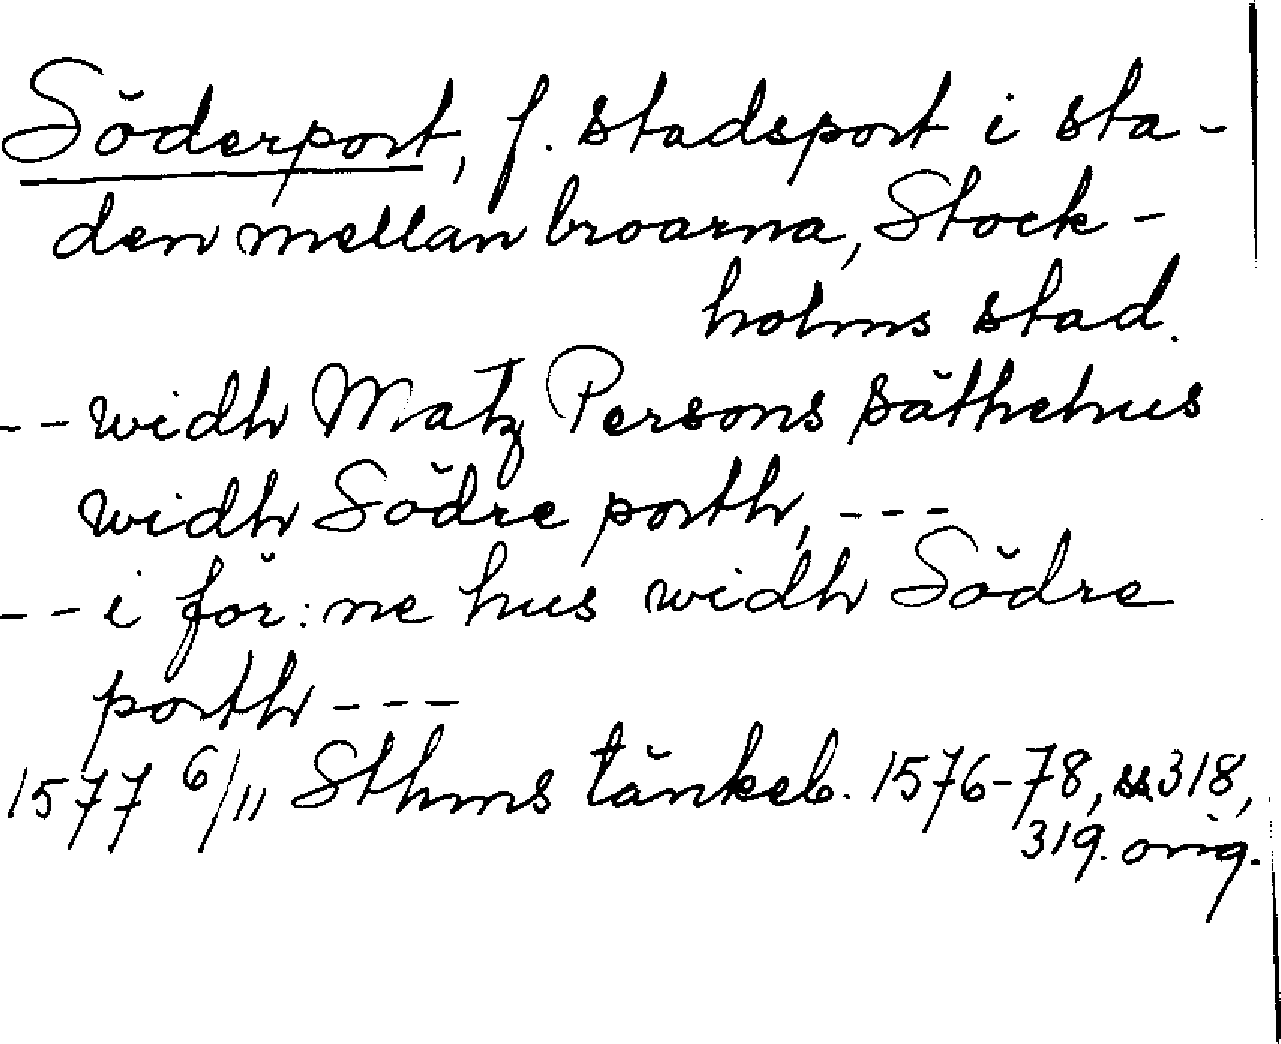 Söderport, f. stadsport i sta-
den mellan broarna, Stock-
holms stad.
-- widh Matz Persons säthehus
widh Södre porth, ---
-- i för:ne hus widh Södre
porth ---
1577 6/11 Sthms tänkeb. 1576-78, ss 318,
319. orig.